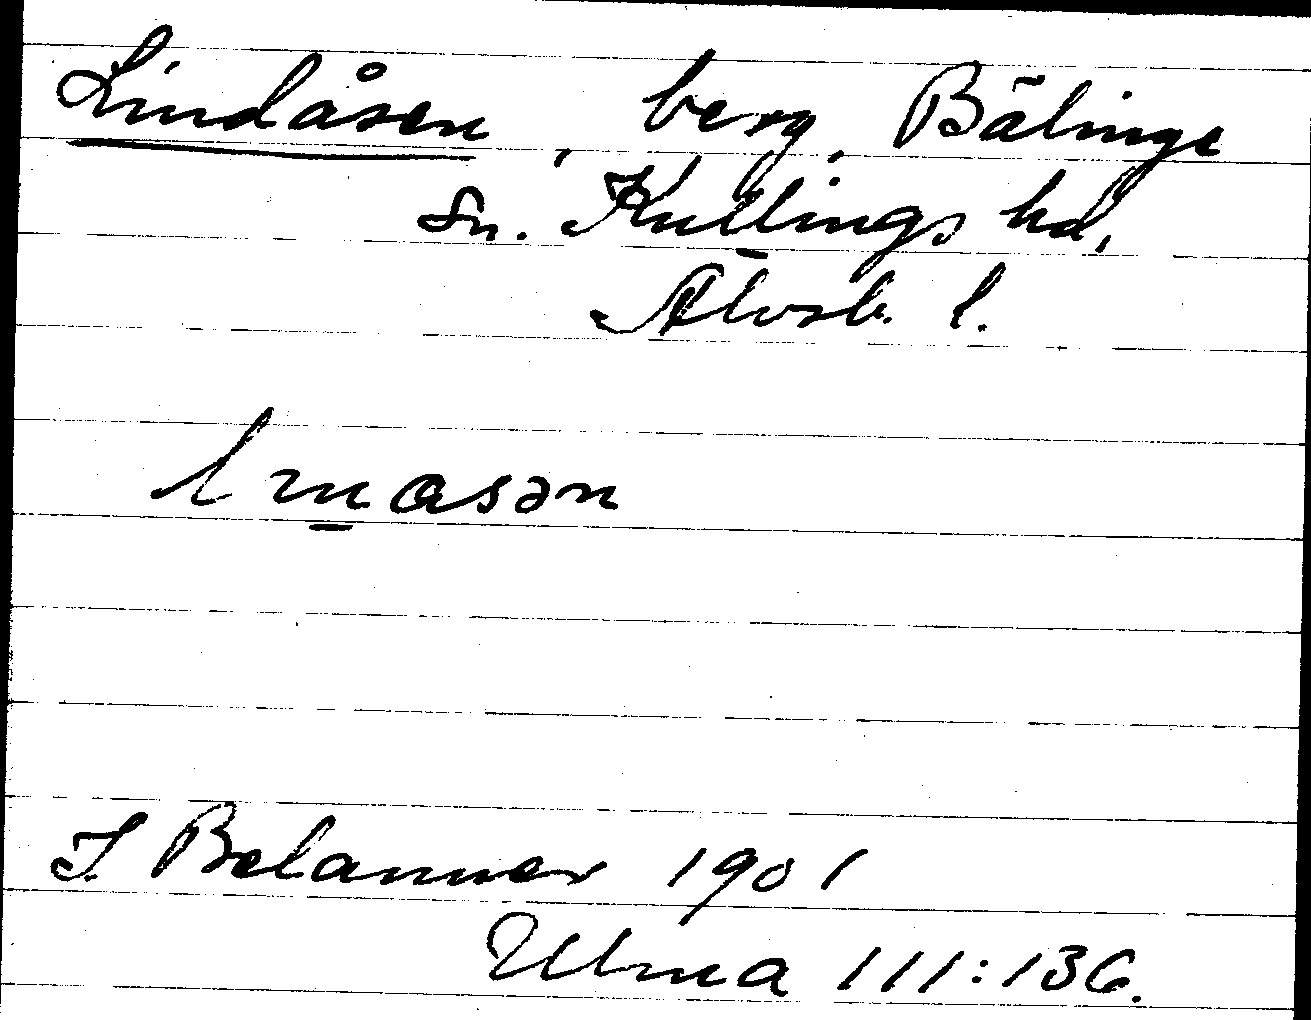 Lindåsen, berg, Bälinge
sn. Kullings hd,
Älvsb. l.
T Belanner 1901
Ulma 111:136.